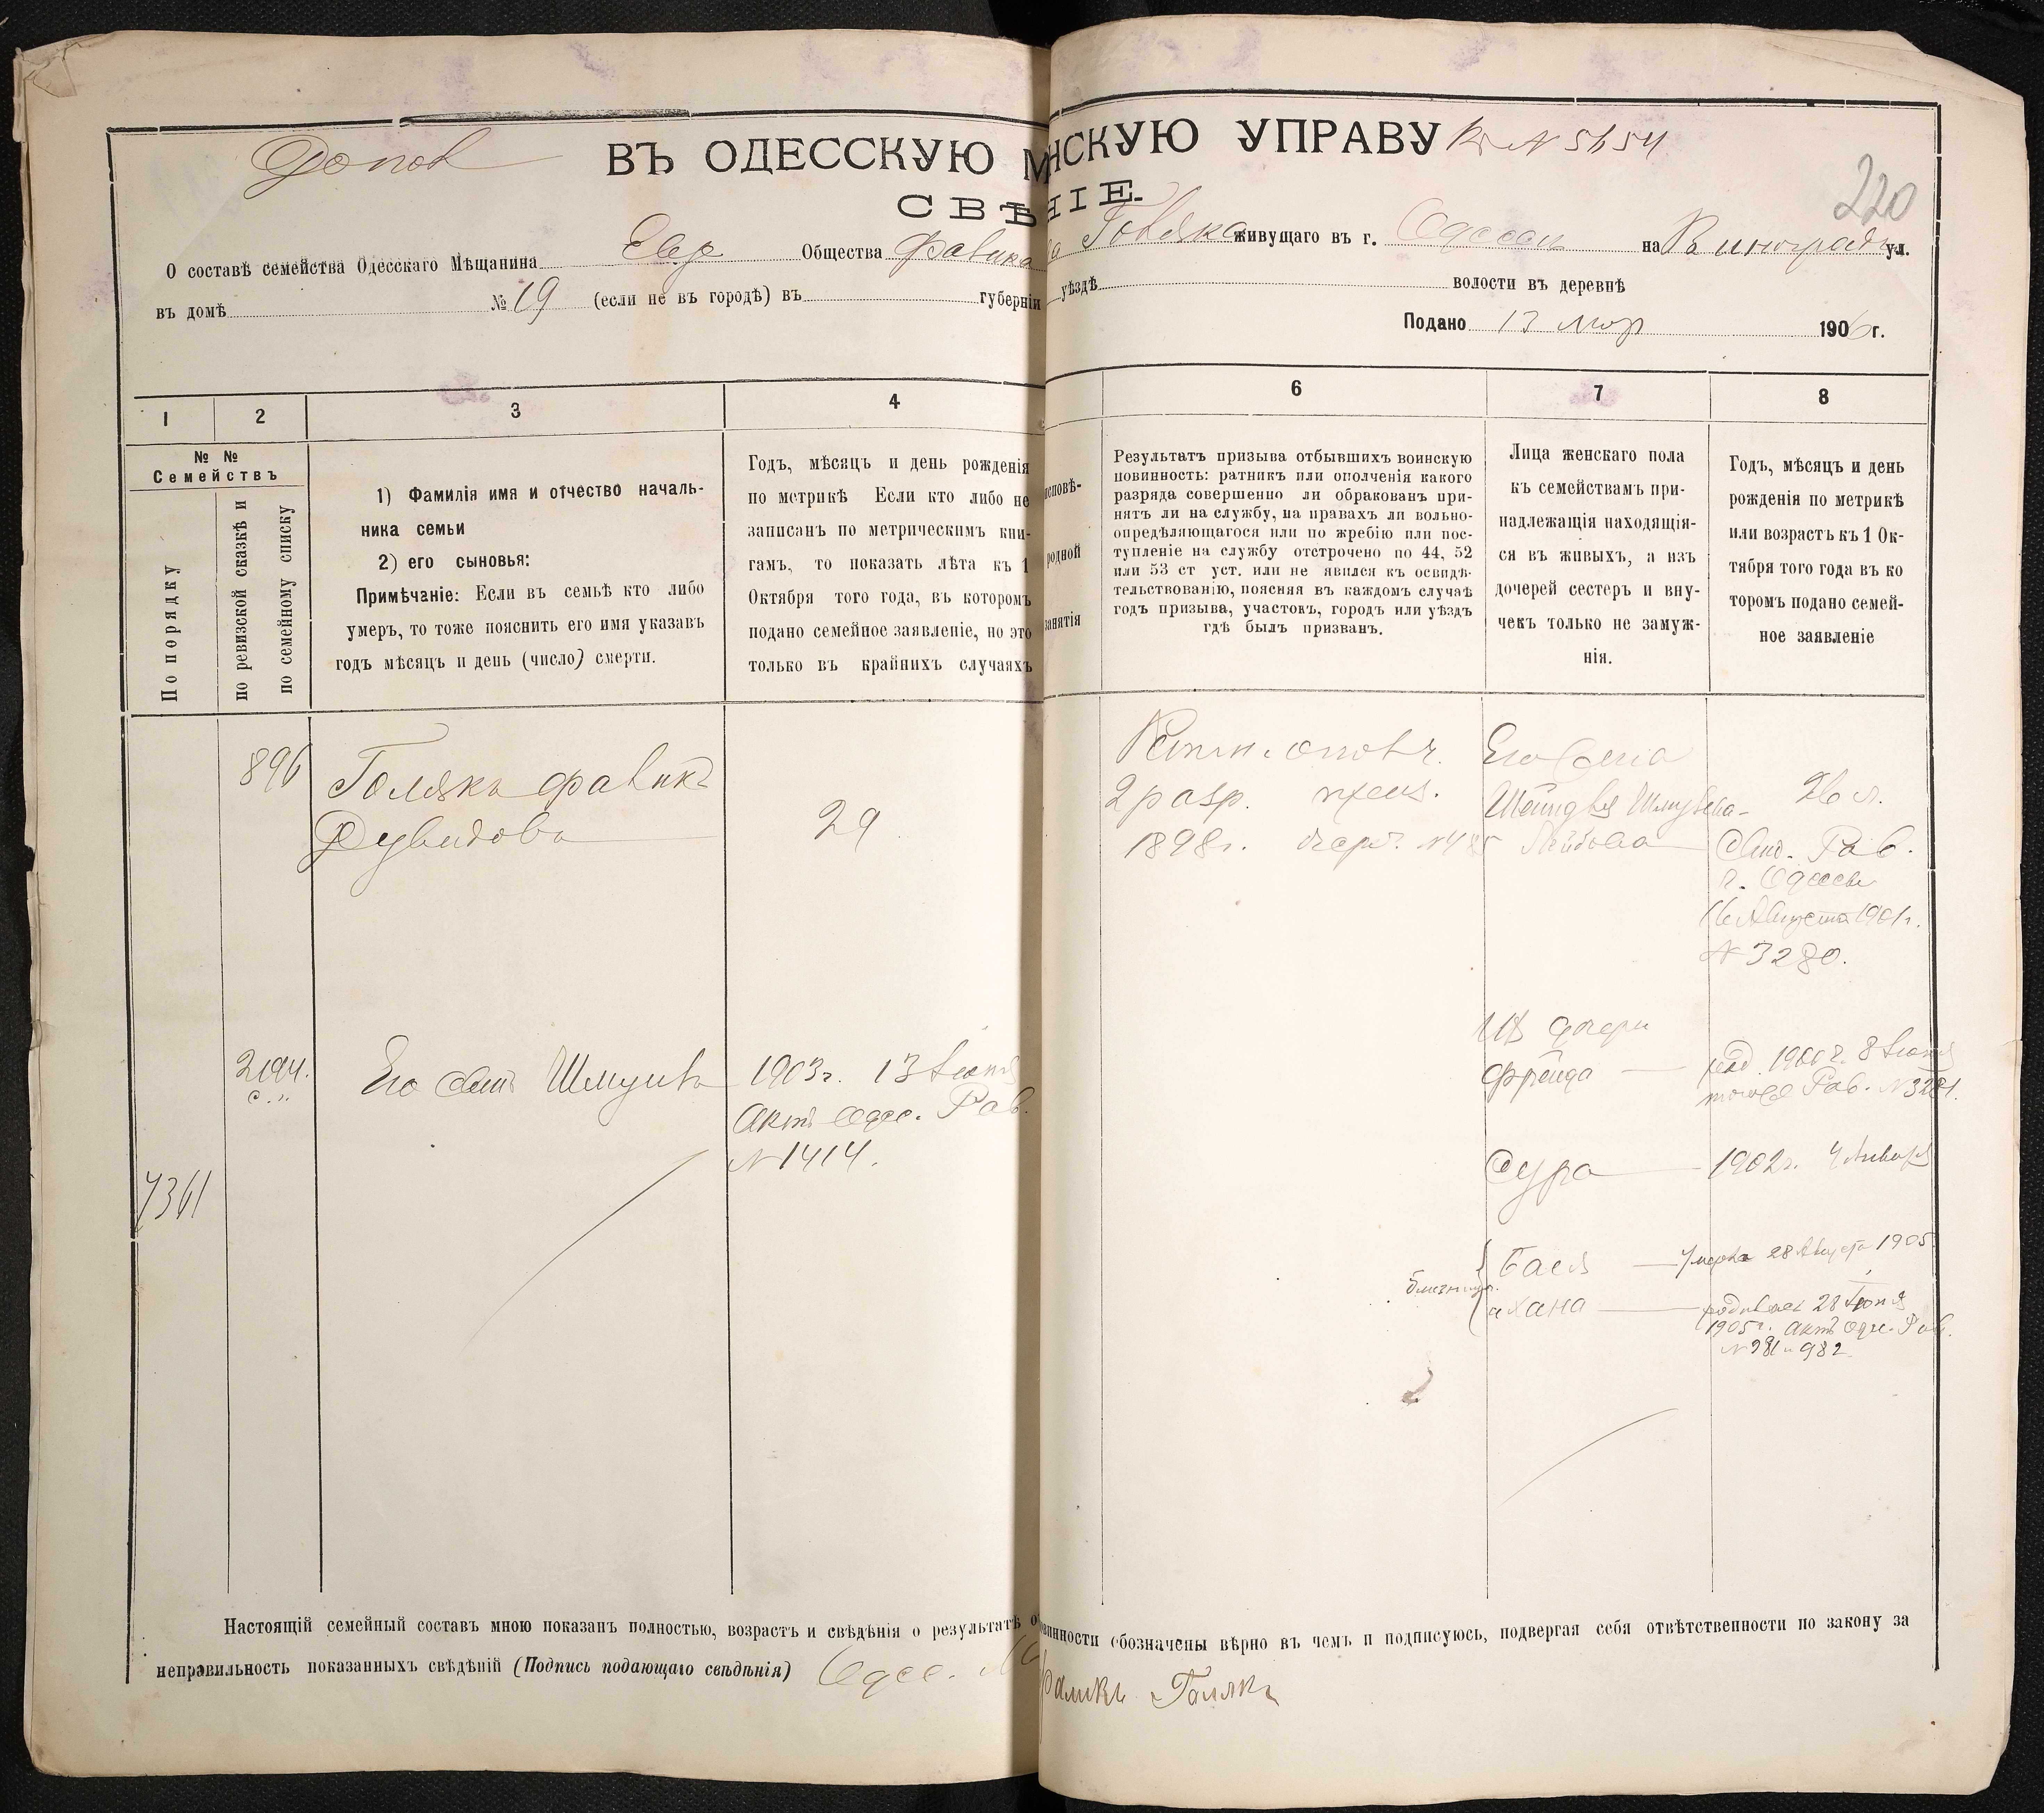 Допов
ВЪ ОДЕССКУЮ М НСКУЮ УПРАВУ Къ N 5654
СВѢ НІЕ.
220
О составѣ семейства Одесскаго Мѣщанина Евр Общества Фавика живущаго въ г. Одессѣ на ул.
въ домѣ № 19 (если не въ городѣ) въ губерніи уѣздѣ волости въ деревнѣ
Подано 13 Мар 1906 г.
1 2 3 4 6 7 8
№ №
Семействъ
По порядку
по ревизской сказкѣ и
по семейному списку
1) Фамилія имя и отчество началь-
ника семьи
2) его сыновья:
Примѣчаніе: Если въ семьѣ кто либо
умеръ, то тоже пояснить его имя указавъ
годъ мѣсяцъ и день (число) смерти.
Годъ, мѣсяцъ и день рожденія
по метрикѣ Если кто либо не
записанъ по метрическимъ кни-
гамъ, то показать лѣта къ 1
Октября того года, въ которомъ
подано семейное заявленіе, но это
только въ крайнихъ случаяхъ
исповѣ-
родной
занятія
Результатъ призыва отбывшихъ воинскую
повинность: ратникъ или ополченія какого
разряда совершенно ли обракованъ при-
нятъ ли на службу, на правахъ ли вольно-
опредѣляющагося или по жребію или пос-
тупленіе на службу отстрочено по 44, 52
или 53 ст уст. или не явился къ освидѣ-
тельствованію, поясняя въ каждомъ случаѣ
годъ призыва, участокъ, городъ или уѣздъ
гдѣ былъ призванъ.
Лица женскаго пола
къ семействамъ при-
надлежащія находящія-
ся въ живыхъ, а изъ
дочерей сестеръ и вну-
чекъ только не замуж-
нія.
Годъ, мѣсяцъ и день
рожденія по метрикѣ
или возрастъ къ 1 Ок-
тября того года въ ко
торомъ подано семей-
ное заявленіе
896
Голякъ Фавикъ
Дувидовъ
29
Ратн. ополч.
2 разр.
1898г. N 485
Его жена
Шейндля Шмулева-
Лейбова
26 л.
Свид. Рав.
г. Одессы
16 Августа 1901г.
N 3280.
2194.
Его сынъ Шмулъ
1903г. 13 Іюня
Актъ Одес. Рав.
N 1414.
7361
Ихъ дочери
Фрейда
род. 1900 г. 8 Іюня
Рав. N 3281.
Сура
1902г. 4 Января
близнецы
Бася
Умерла 28 Августа 1905
и Хана
родились 28 Іюня
1905г. актъ Одес. Рав.
N 981 и 982
Настоящій семейный составъ мною показанъ полностью, возрастъ и свѣдѣнія о результатѣ о повинности обозначены вѣрно въ чемъ и подписуюсь, подвергая себя отвѣтственности по закону за
неправильность показанныхъ свѣдѣній (Подпись подающаго свѣдѣнія) Одес. Фавикъ Голякъ